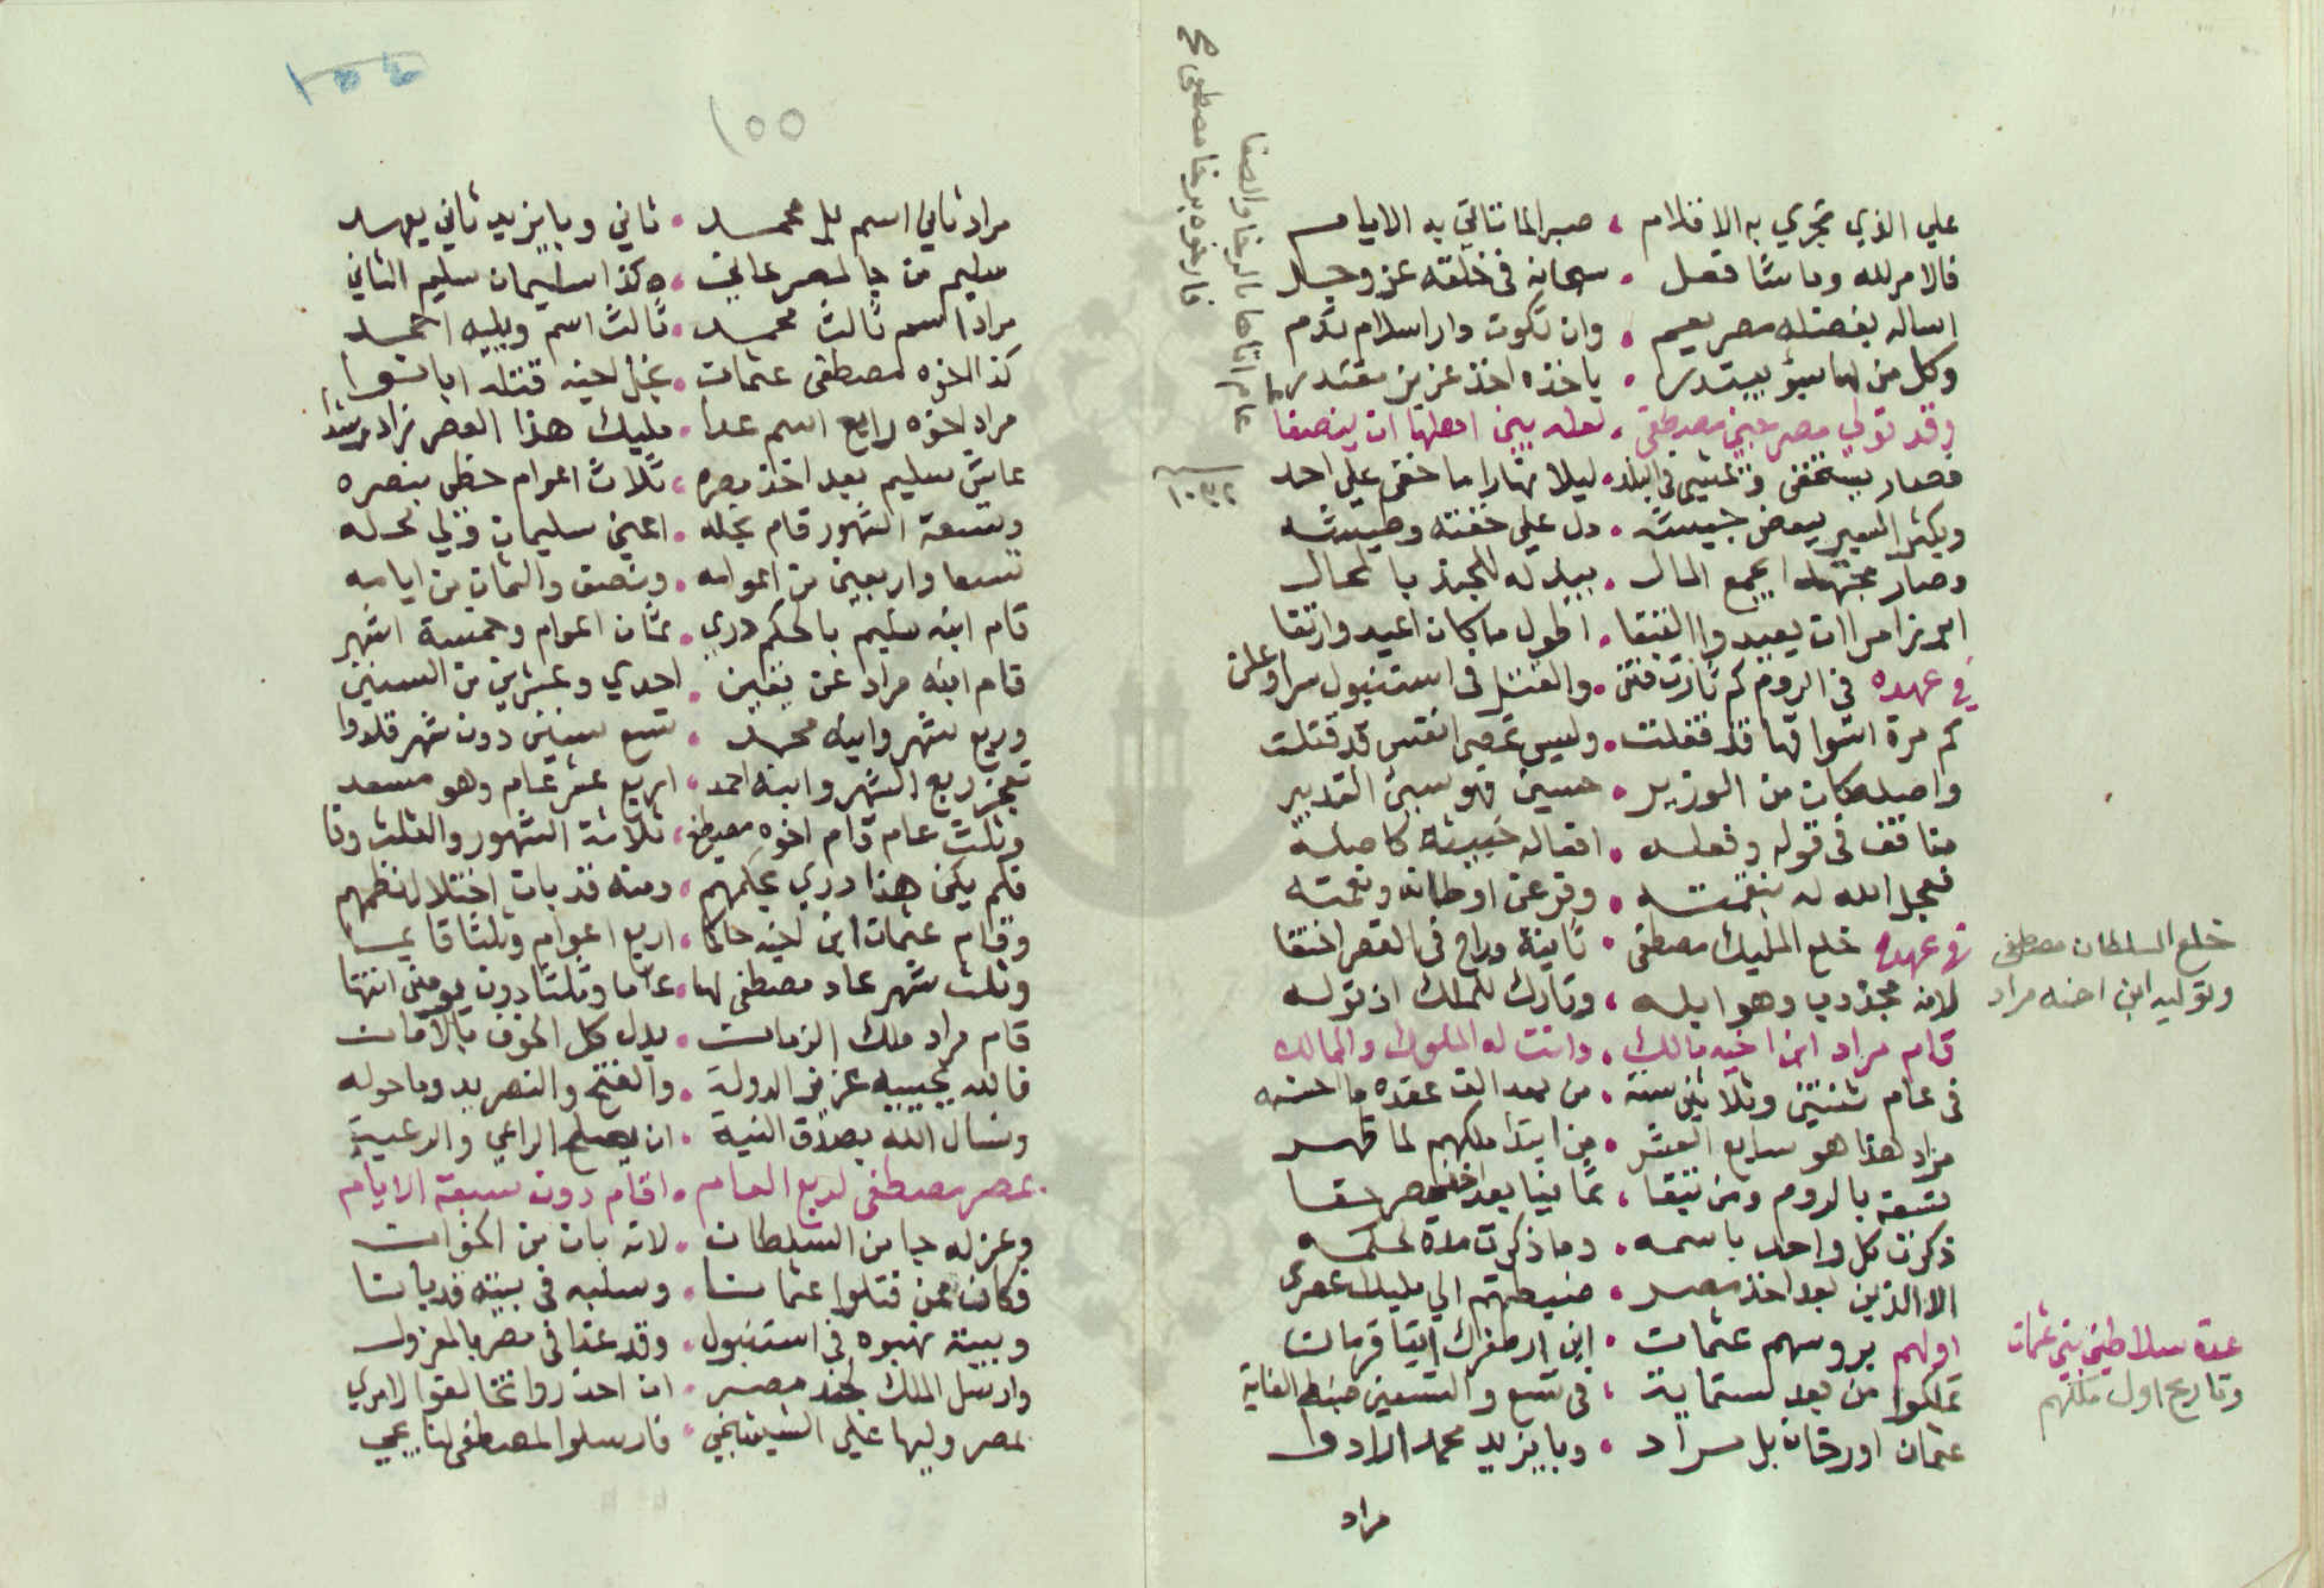 علي الذي تجري به الاقلام ، صبرا لما تاتي به الايام
فالامر لله وما شا فعل . سبحانه في خلقه عز وجل
اساله بفضله مصر يعيم . وان تكون دار اسلام تدم
وكل من لها بسوء يبتدر . ياخذه اخذ عزيز مقتدر
وقد تولي مصر مصطفى . لعله بين اهلها ان ينصفا
فصار يستخفى وتمشي في البلد . ليلا نهارا ما خفى على احد
ويكثر التعبير بعض . دل علي خفته وطيشه
وصار مجتهدا بجمع المال . بالمحال
اطول ما كان اعيد وارتقا
في عهده في الروم كم ثارت فتن . والقتل في استنبول سرا وعلن
كم مرة اسواقها قد قفلت . وليس تحصى انفس قد قتلت
واصله كان من الوزير . حسين فهو سيئ التدبير
منافق في قوله وفعله . افعاله خبيثة كاصله
فعجل الله له بنقمته . وفر عن اوطانه ونعمته
في عهده خلع المليك مصطفى . ثانية وراح في القصر اختفا
خلع السلطان مصطفى
وتوليه ابن اخيه مراد
لانه مجذوب وهو ابله ، وتارك للملك اذ توله
قام مراد ابن اخيه مالك . دانت له الملوك والممالك
في عام ثنتين وثلاثين سنة . من بعد الف عقده ما احسنه
مراد هذا هو سابع العشر . من ابتدا ملكهم لما قهر
تسعة بالروم ومن تبقا ، ثمانيا بعد اخذ مصر حقا
ذكرت كل واحد باسمه . وما ذكرت مدة لحكمه
الا الذين بعد اخذ مصر . ضبطتهم الي مليك عصري
اولهم بروسهم عثمان . ابن ارطغرل اتيا قرمان
عدة سلاطين بني عثمان
وتاريخ اول ملكهم
تملكوا من بعد ستماية ، في تسع والتسعين ضبط الغاية
عثمان اورخان بل مراد . وبايزيد محمد
مراد
عام اتاها بالرخا والصفا
فارغوه برخا مصطفى
١٠٣٢
١٥٥
مراد ثاني اسم بل محمد . ثاني وبايزيد ثاني يعهد
سليم من جا لمصر عاني . وكذا سليمان سليم الثاني
مراد اسم ثالث محمد . ثالث اسم ويليه احمد
كذا اخوه مصطفى عثمان . نجل اخيه قتله ابانوا
مراد اخوه رابع اسم عدا . مليك هذا العصر زاد رشدا
عاش سليم بعد اخذ مصره ، ثلاث اعوام حظي بنصره
وتسعة الشهور قام نجله . اعني سليمان ولي محله
تسعا واربعين من اعوامه . ونصف والثمان من ايامه
قام ابنه سليم بالحكم دري . ثمان اعوام وخمسة اشهر
قام ابنه مراد عن يقين . احدي وعشرين من السنين
وربع شهر وابنه محمد . تسع سنين دون شهر قلدوا
ربع الشهر وابنه احمد ، اربع عشر عام وهو مسعد
وثلث عام قام اخوه مصطفى ، ثلاثة الشهور والثلث وفا
فلم يكن هذا دري بحكمهم ، ومنه قد بان اختلال نظمهم
وقام عثمان ابن اخيه حاكما . اربع اعوام وثلثا قايما
وثلث شهر عاد مصطفى لها . عاما وثلثا دون يومين انتها
قام مراد ملك الزمان . بدل كل الخوف بالامان
فالله يحييه عزيز الدولة . والفتح والنصر يدوما حوله
ونسال الله بصدق النية . ان يصلح الراعي والرعية
عصر مصطفى لربع العام . اقام دون سبعة الايام
وعزله جا من السلطان . لانه بان من الخوان
فكان ممن قتلوا عثمانا . وسلبه في بيته قد بانا
وبيته نهبوه في استنبول . وقد غدا في مصر بالمعزول
وارسل الملك لجند مصر . ان احذروا تخالفوا لامري
لمصر وليها علي الشيشنجي . فارسلوا لمصطفى لنا يجي